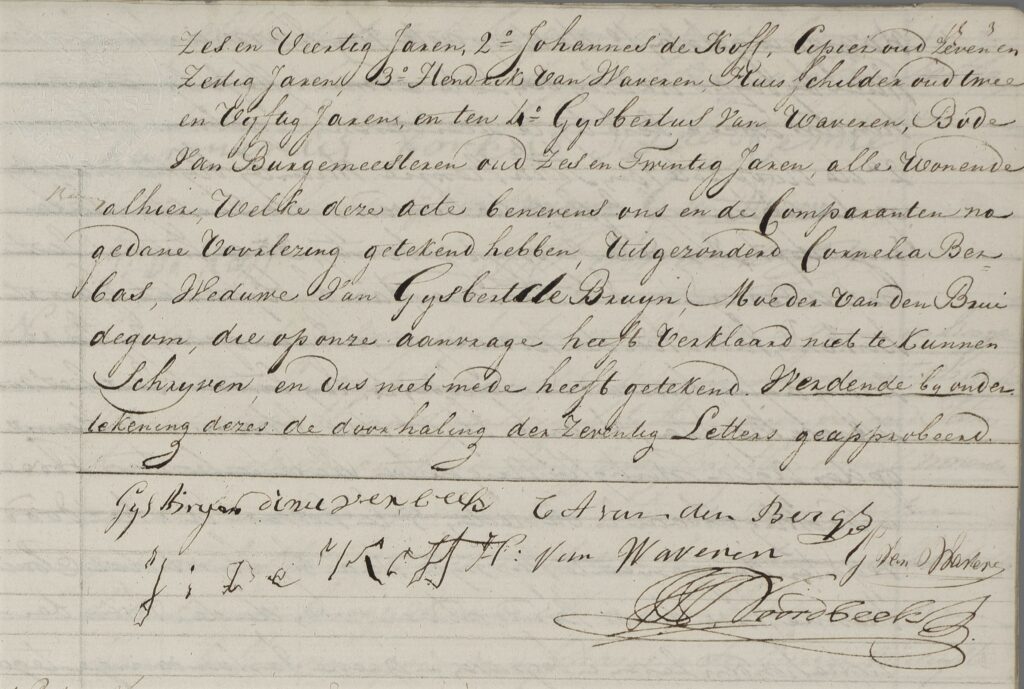 Zes en Veertig Jaren, 2o Johannes de Koff, Cipier oud Zeven en
Zestig Jaren, 3o Hendrik Van Waveren, Huis Schilder oud twee
en Vyftig Jaren, en ten 4o Gysbertus Van Waveren, Bode
Van Burgemeesteren oud Zes en Twintig Jaren, alle Wonende
alhier, Welke deze acte benevens ons en de Comparanten na
gedane Voorlezing getekend hebben, Uitgezonderd Cornelia Ber=
bas, Weduwe Van Gysbert de Bruyn, Moeder Van den Brui
degom, die op onze aanvrage heeft Verklaard niet te Kunnen
Schryven, en dus niet mede heeft getekend. Werdende by onder
tekening dezes de doorhaling der Zeventig Letters geapprobeerd.
Gys Bruyn verbeek C A van den Berg
J: De Koff H: van Waveren G Van Waveren
Noordbeek